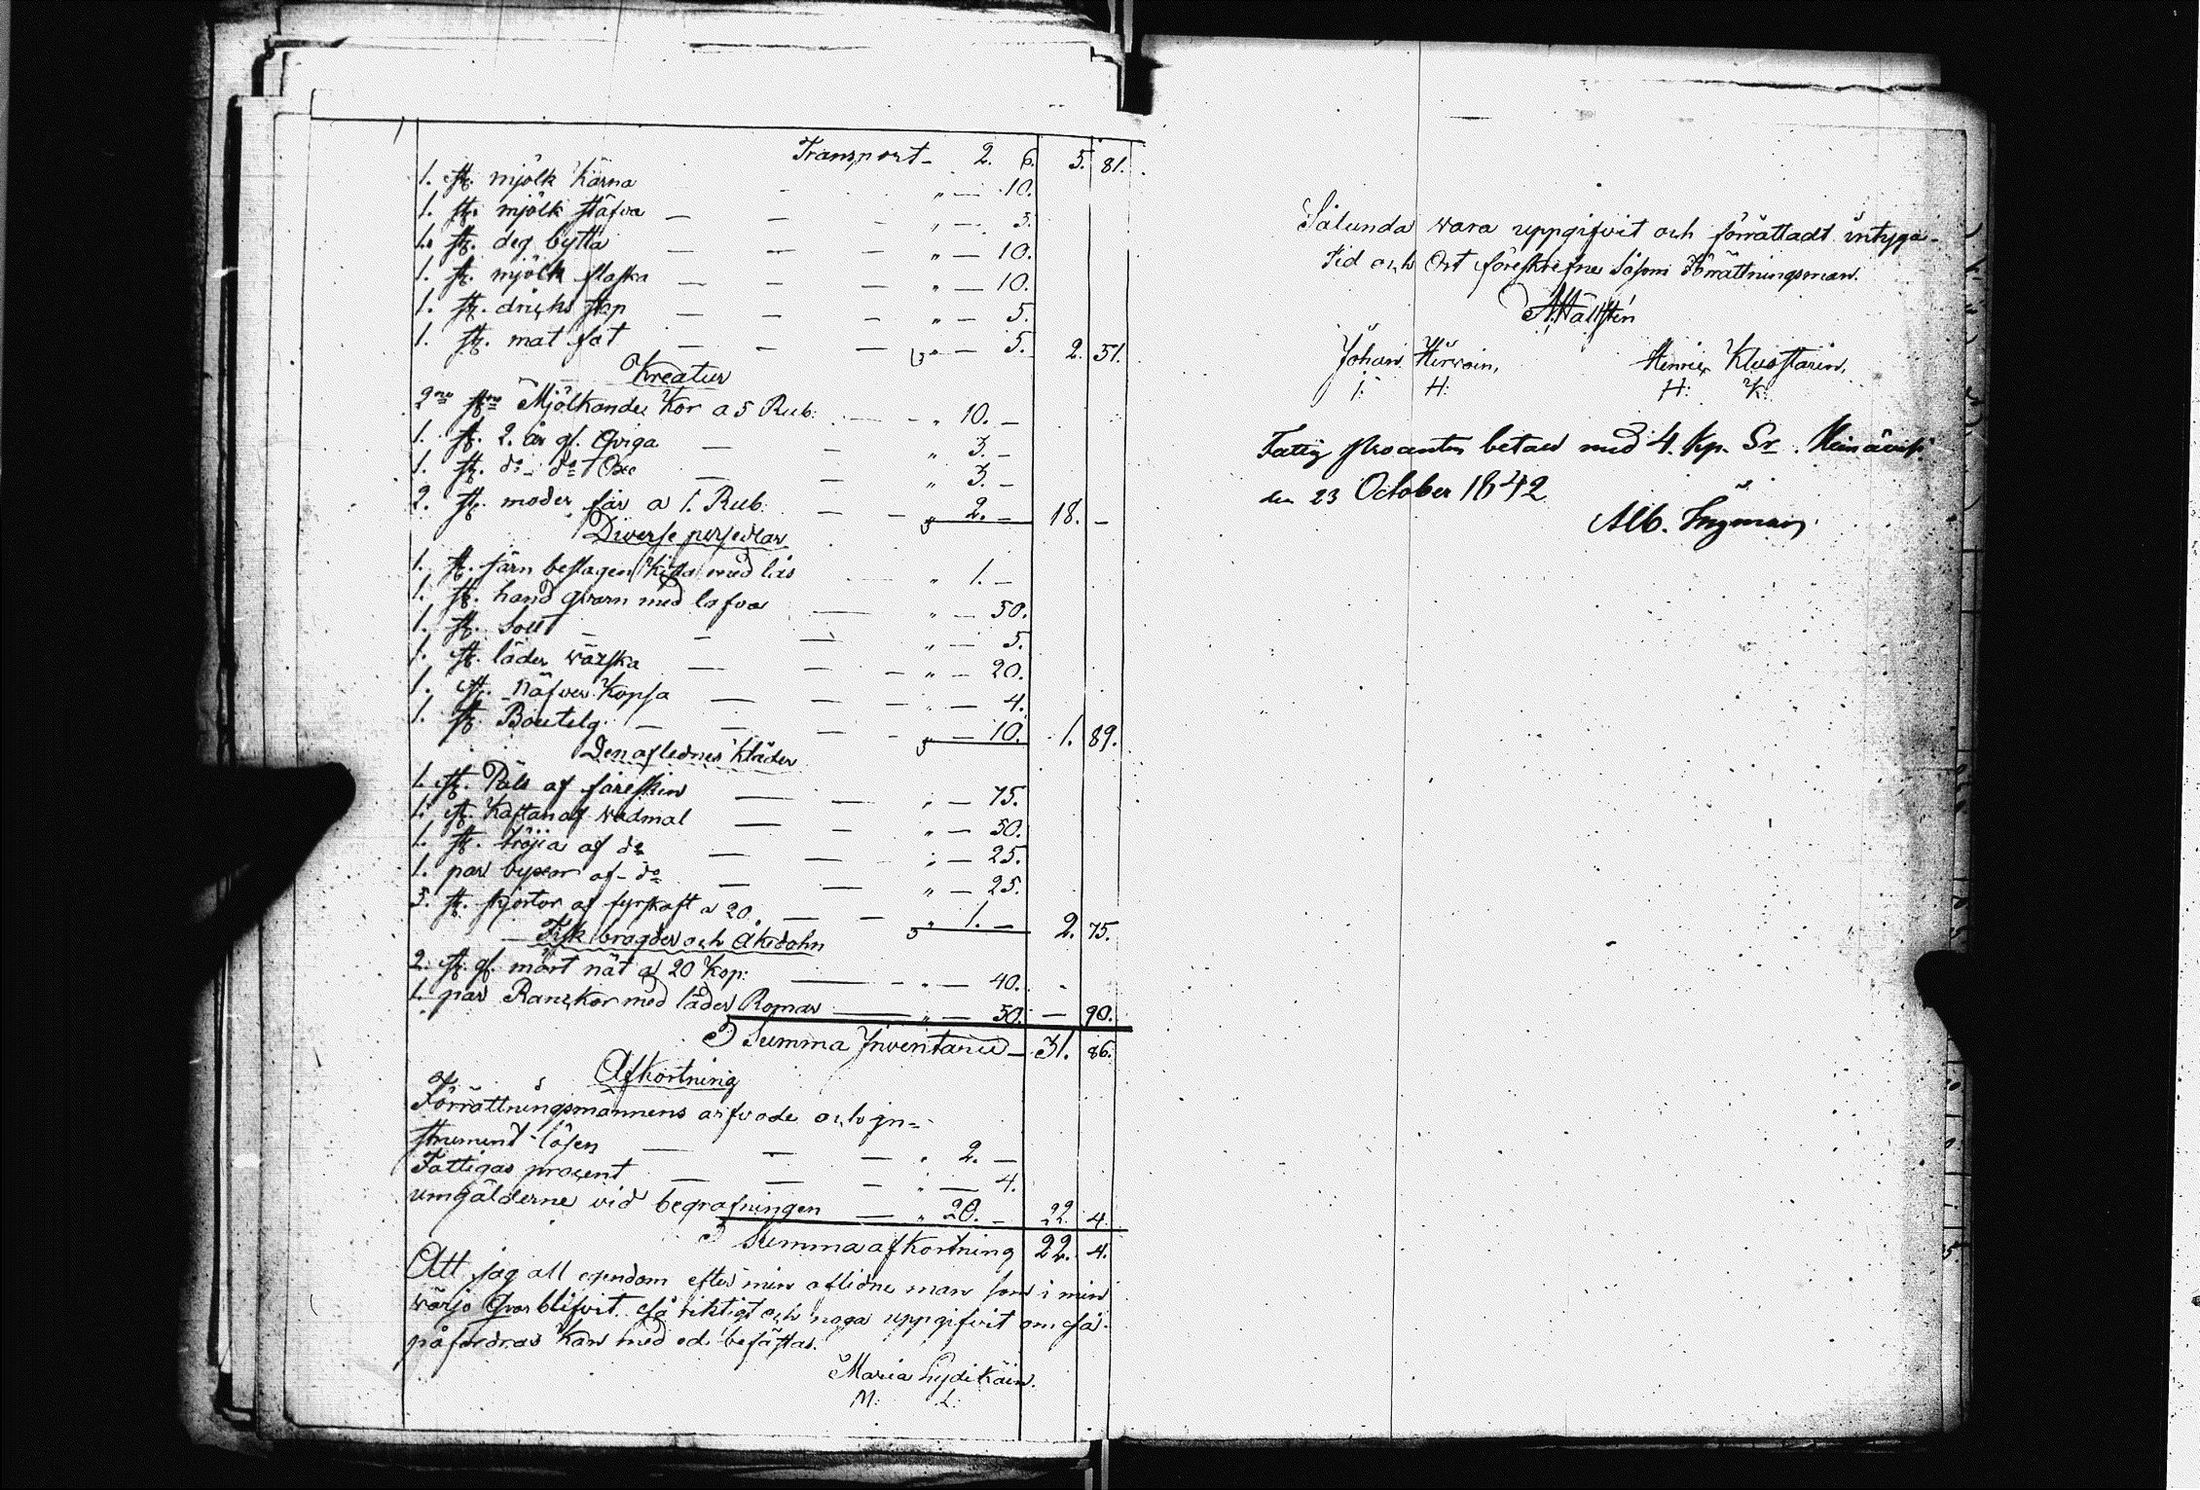 Transport - 2. 6. 5. 81.
1. st. mjölk kärna " — 10.
1. st. mjölk stäfva — — — " — 5.
1. st. deg bytta — — — " — 10.
1. st. mjölk flaska — — — " — 10.
1. st. dricks stop — — — " — 5.
1. st. mat fat — — — " — 5. 2. 51.
Kreatur
2ne stne Mjölkande Kor a 5 Rub: — " 10. —
1. st. 2. år gl. Qviga — " 3. —
1. st. do do Oxe — — " 3. —
2. st. moder får a 1. Rub. — — " 2. — 18. —
Diverse persedlar
1. st. järn beslagen Kista med lås — " 1. —
1. st. hand qvarn med lafva — " — 50.
1. st. — — — " — 5.
1. st. läder wäska — — — " — 20.
1. st. Näfver Kopsa — — — " — 4.
1. st. Boutelg. — — — " — 10. 1. 89.
Den aflednes Kläder
1. st. Päls af fårskin — — " — 75.
1. st. Kaftan af wadmal — — " — 50.
1. st. tröija af do — — " — 25.
1. par byxor af do — — " — 25.
5. st. skjortor af fyrskaft a 20. — — " 1. — 2. 75.
Fisk bragder och Åkedohn
2. st. gl. mört nät a 20 Kop: — " — 40.
1. par Ranckor med läder Romar — " — 50. — 90.
Summa Inventarii — 31. 86.
Afkortning
Förrättningsmannens arfvode och in=
strument lösen — — — " 2. —
Fattigas procent — — — " — 4.
umgälderne vid begrafningen — " 20. — 22. 4.
Summa afkortning 22. 4.
Att jag all egendom efter min aflidne man som i min
wärjo qvarblifvit så riktigt och noga uppgifvit om så
påfordras kan med ed befästas.
Maria Lydikäin.
M: L:
Sålunda wara uppgifvit och förrättadt intyga
Tid och Ort föreskrefne Såsom Förrättningsman.
A. Hällstén
Johan Hirvoin, Henric Klustarin,
J: H: H: K:
Fattig procenten betald med 4. Kp. Sr.
den 23 October 1842
Alb. Ingman